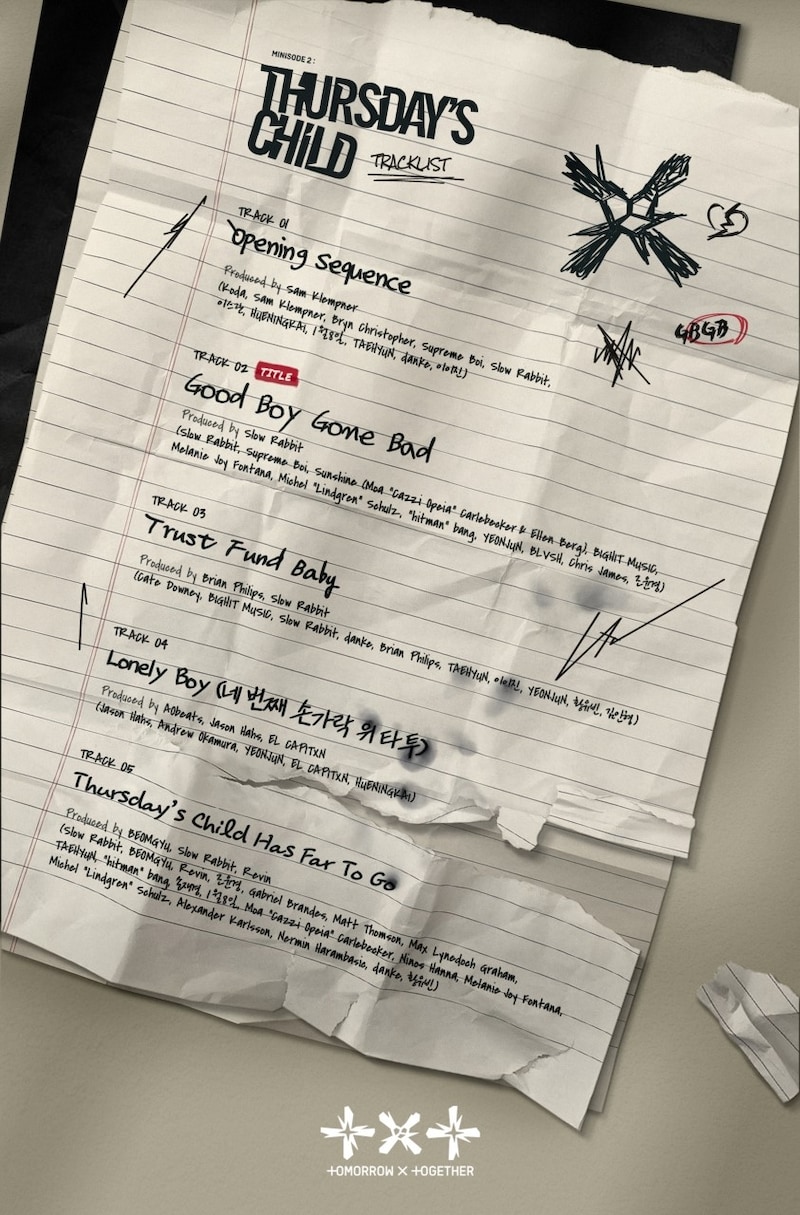 MINISODE 2:
THURSDAY'S
CHILD TRACKLIST
TRACK 01
Opening Sequence
Produced by Sam Klempner
(Koda, Sam Klempner, Bryn Christopher, Supreme Boi, Slow Rabbit,
이스란, HUENINGKAI, 1월8일, TAEHYUN, danke, 이이진)
GBGB
TRACK 02 TITLE
Good Boy Gone Bad
Produced by Slow Rabbit
(Slow Rabbit, Supreme Boi, Sunshine (Moa "Cazzi Opeia" Carlebecker & Ellen Berg), BIGHIT MUSIC,
Melanie Joy Fontana, Michel "Lindgren" Schulz, "hitman" bang, YEONJUN, BLVSH, Chris James, 조윤경)
TRACK 03
Trust Fund Baby
Produced by Brian Philips, Slow Rabbit
(Cate Downey, BIGHIT MUSIC, Slow Rabbit, danke, Brian Philips, TAEHYUN, 이이진, YEONJUN, 황유빈, 김인형)
TRACK 04
Lonely Boy (네 번째 손가락 위 타투)
Produced by Aobeats, Jason Hahs, EL CAPITXN
(Jason Hahs, Andrew Okamura, YEONJUN, EL CAPITXN, HUENINGKAI)
TRACK 05
Thursday's Child Has Far To Go
Produced by BEOMGYU, Slow Rabbit, Revin
(Slow Rabbit, BEOMGYU, Revin, 조윤경, Gabriel Brandes, Matt Thomson, Max Lynedoch Graham,
TAEHYUN, "hitman" bang, 1월8일, Moa "Cazzi Opeia" Carlebecker, Ninos Hanna, Melanie Joy Fontana,
Michel "Lindgren" Schulz, Alexander Karlsson, Nermin Harambasic, danke, 황유빈)
TOMORROW X TOGETHER